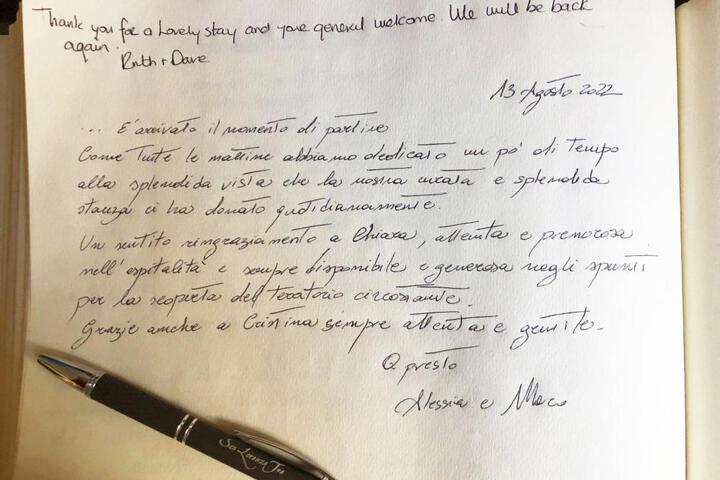 Thank you for a lovely stay and your general welcome. We will be back
again.
Ruth + Dave
13 Agosto 2022
... E' arrivato il momento di partire
Come tutte le mattine abbiamo dedicato un po' di tempo
alla splendida vista che la nostra curata e splendida
stanza ci ha donato quotidianamente.
Un sentito ringraziamento a Chiara, attenta e premurosa
nell'ospitalità e sempre disponibile e generosa negli spunti
per la scoperta del territorio circostante.
Grazie anche a Cristina sempre attenta e gentile.
A presto
Alessia e